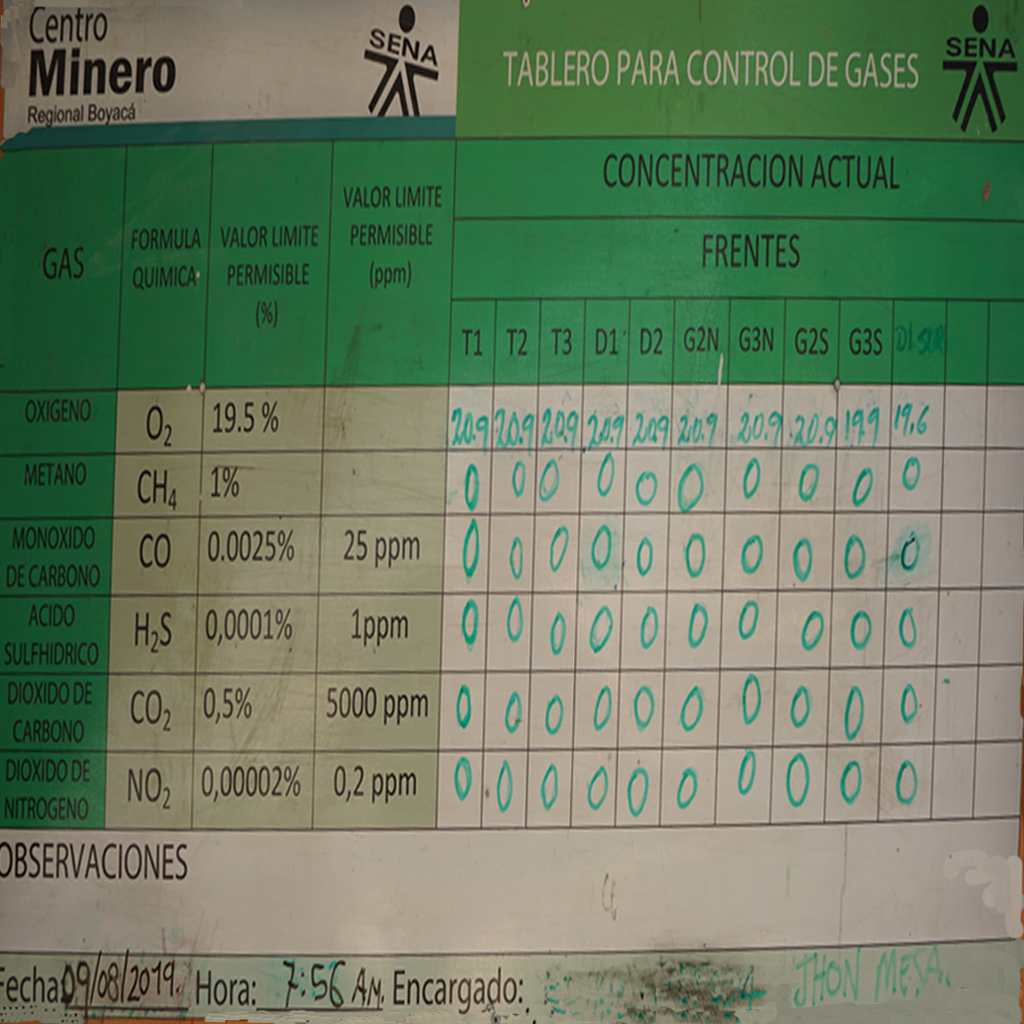 Centro
Minero
Regional Boyacá
SENA
TABLERO PARA CONTROL DE GASES
SENA
GAS
FORMULA
QUIMICA
VALOR LIMITE
PERMISIBLE
(%)
VALOR LIMITE
PERMISIBLE
(ppm)
CONCENTRACION ACTUAL
FRENTES
T1 T2 T3 D1 D2 G2N G3N G2S G3S D1 SUR
OXIGENO O2 19.5 % 20.9 20.9 20.9 20.9 20.9 20.9 20.9 20.9 19.9 19.6
METANO CH4 1% 0 0 0 0 0 0 0 0 0 0
MONOXIDO
DE CARBONO CO 0.0025% 25 ppm 0 0 0 0 0 0 0 0 0 0
ACIDO
SULFHIDRICO H2S 0,0001% 1ppm 0 0 0 0 0 0 0 0 0 0
DIOXIDO DE
CARBONO CO2 0,5% 5000 ppm 0 0 0 0 0 0 0 0 0 0
DIOXIDO DE
NITROGENO NO2 0,00002% 0,2 ppm 0 0 0 0 0 0 0 0 0 0
OBSERVACIONES
Fecha: 09/08/2019. Hora: 7:56 AM. Encargado: JHON MESA.